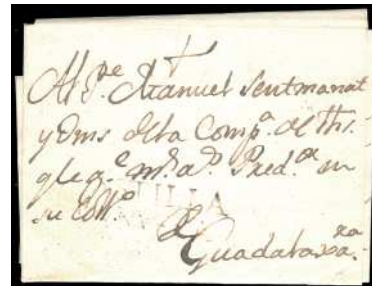 Al P.e Manuel Sentmanat
y Ems dela Comp.a de Ihs.
g.e q.e m.s a.s Pred.or en
su Coll.o
TILLA
de
Guadalaxa.ra